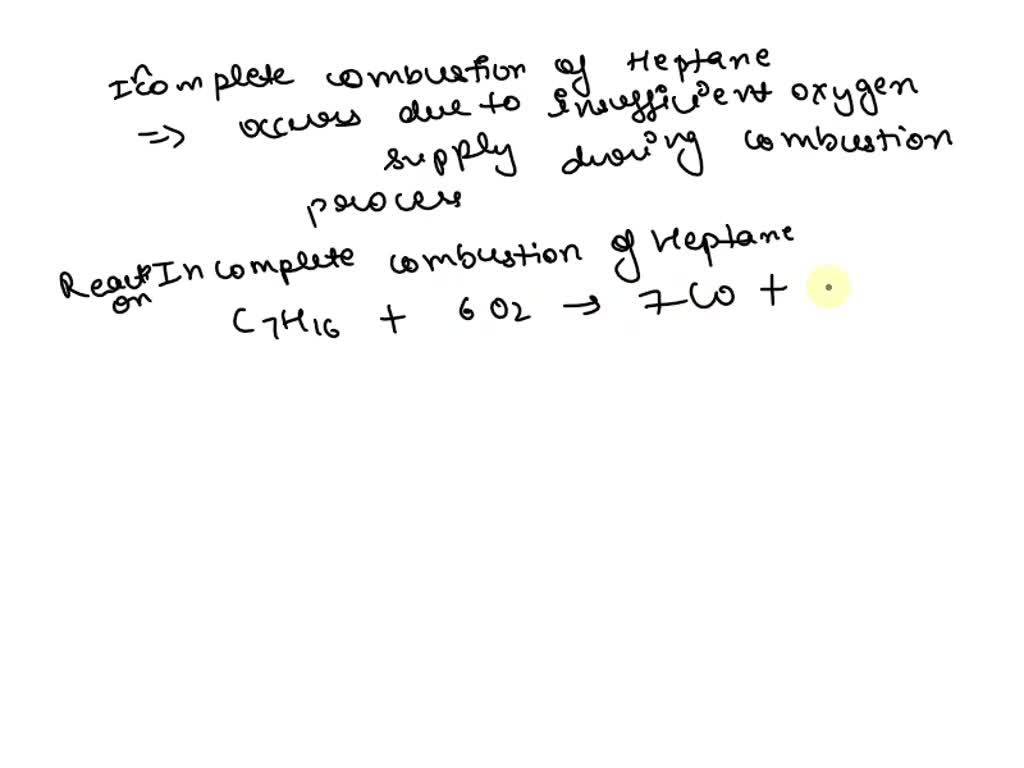 Incomplete combustion of Heptane
=> occurs due to insufficient oxygen
supply during combustion
process
Reaction Incomplete combustion of Heptane
C7H16 + 6 O2 → 7CO +